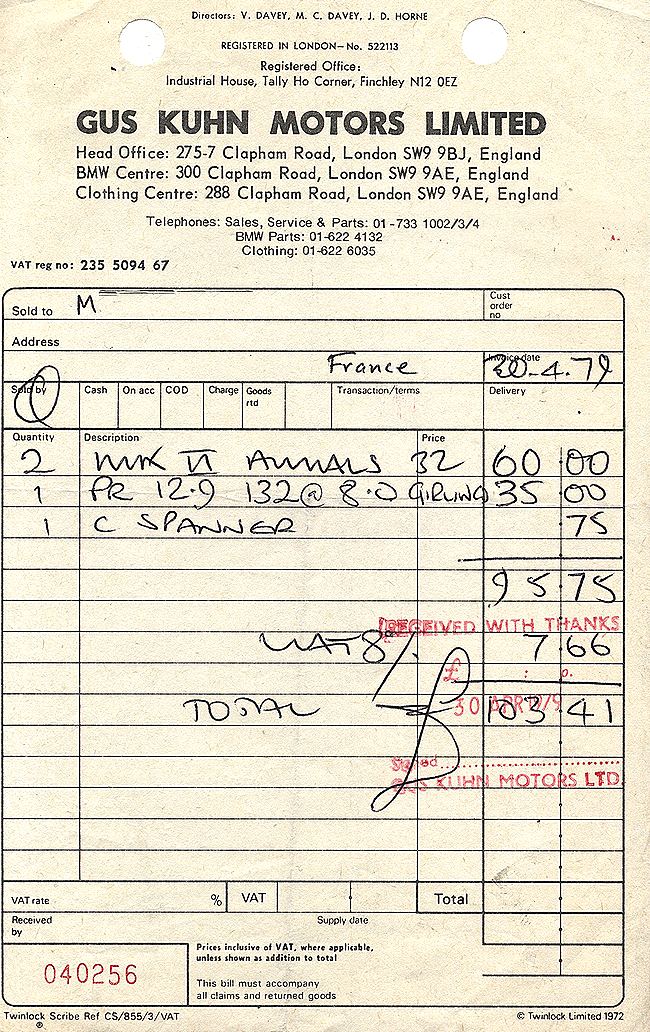 Directors: V. DAVEY, M. C. DAVEY, J. D. HORNE
REGISTERED IN LONDON—No. 522113
Registered Office:
Industrial House, Tally Ho Corner, Finchley N12 0EZ
GUS KUHN MOTORS LIMITED
Head Office: 275-7 Clapham Road, London SW9 9BJ, England
BMW Centre: 300 Clapham Road, London SW9 9AE, England
Clothing Centre: 288 Clapham Road, London SW9 9AE, England
Telephones: Sales, Service & Parts: 01-733 1002/3/4
BMW Parts: 01-622 4132
Clothing: 01-622 6035
VAT reg no: 235 5094 67
Sold to M Cust order no
Address
France Invoice date 30.4.79
Sold by Cash On acc COD Charge Goods rtd Transaction/terms Delivery
Quantity Description Price
2 MK VI 32 60 00
1 PR 12.9 132@ 8.0 GIRLING 35 00
1 C SPANNER 75
95.75
RECEIVED WITH THANKS
VAT 8% 7.66
£ : p.
TOTAL £ 103 41
30 APR 1979
Signed
GUS KUHN MOTORS LTD.
VAT rate % VAT Total
Received by Supply date
Prices inclusive of VAT, where applicable,
unless shown as addition to total
040256
This bill must accompany
all claims and returned goods
Twinlock Scribe Ref CS/855/3/VAT © Twinlock Limited 1972
®